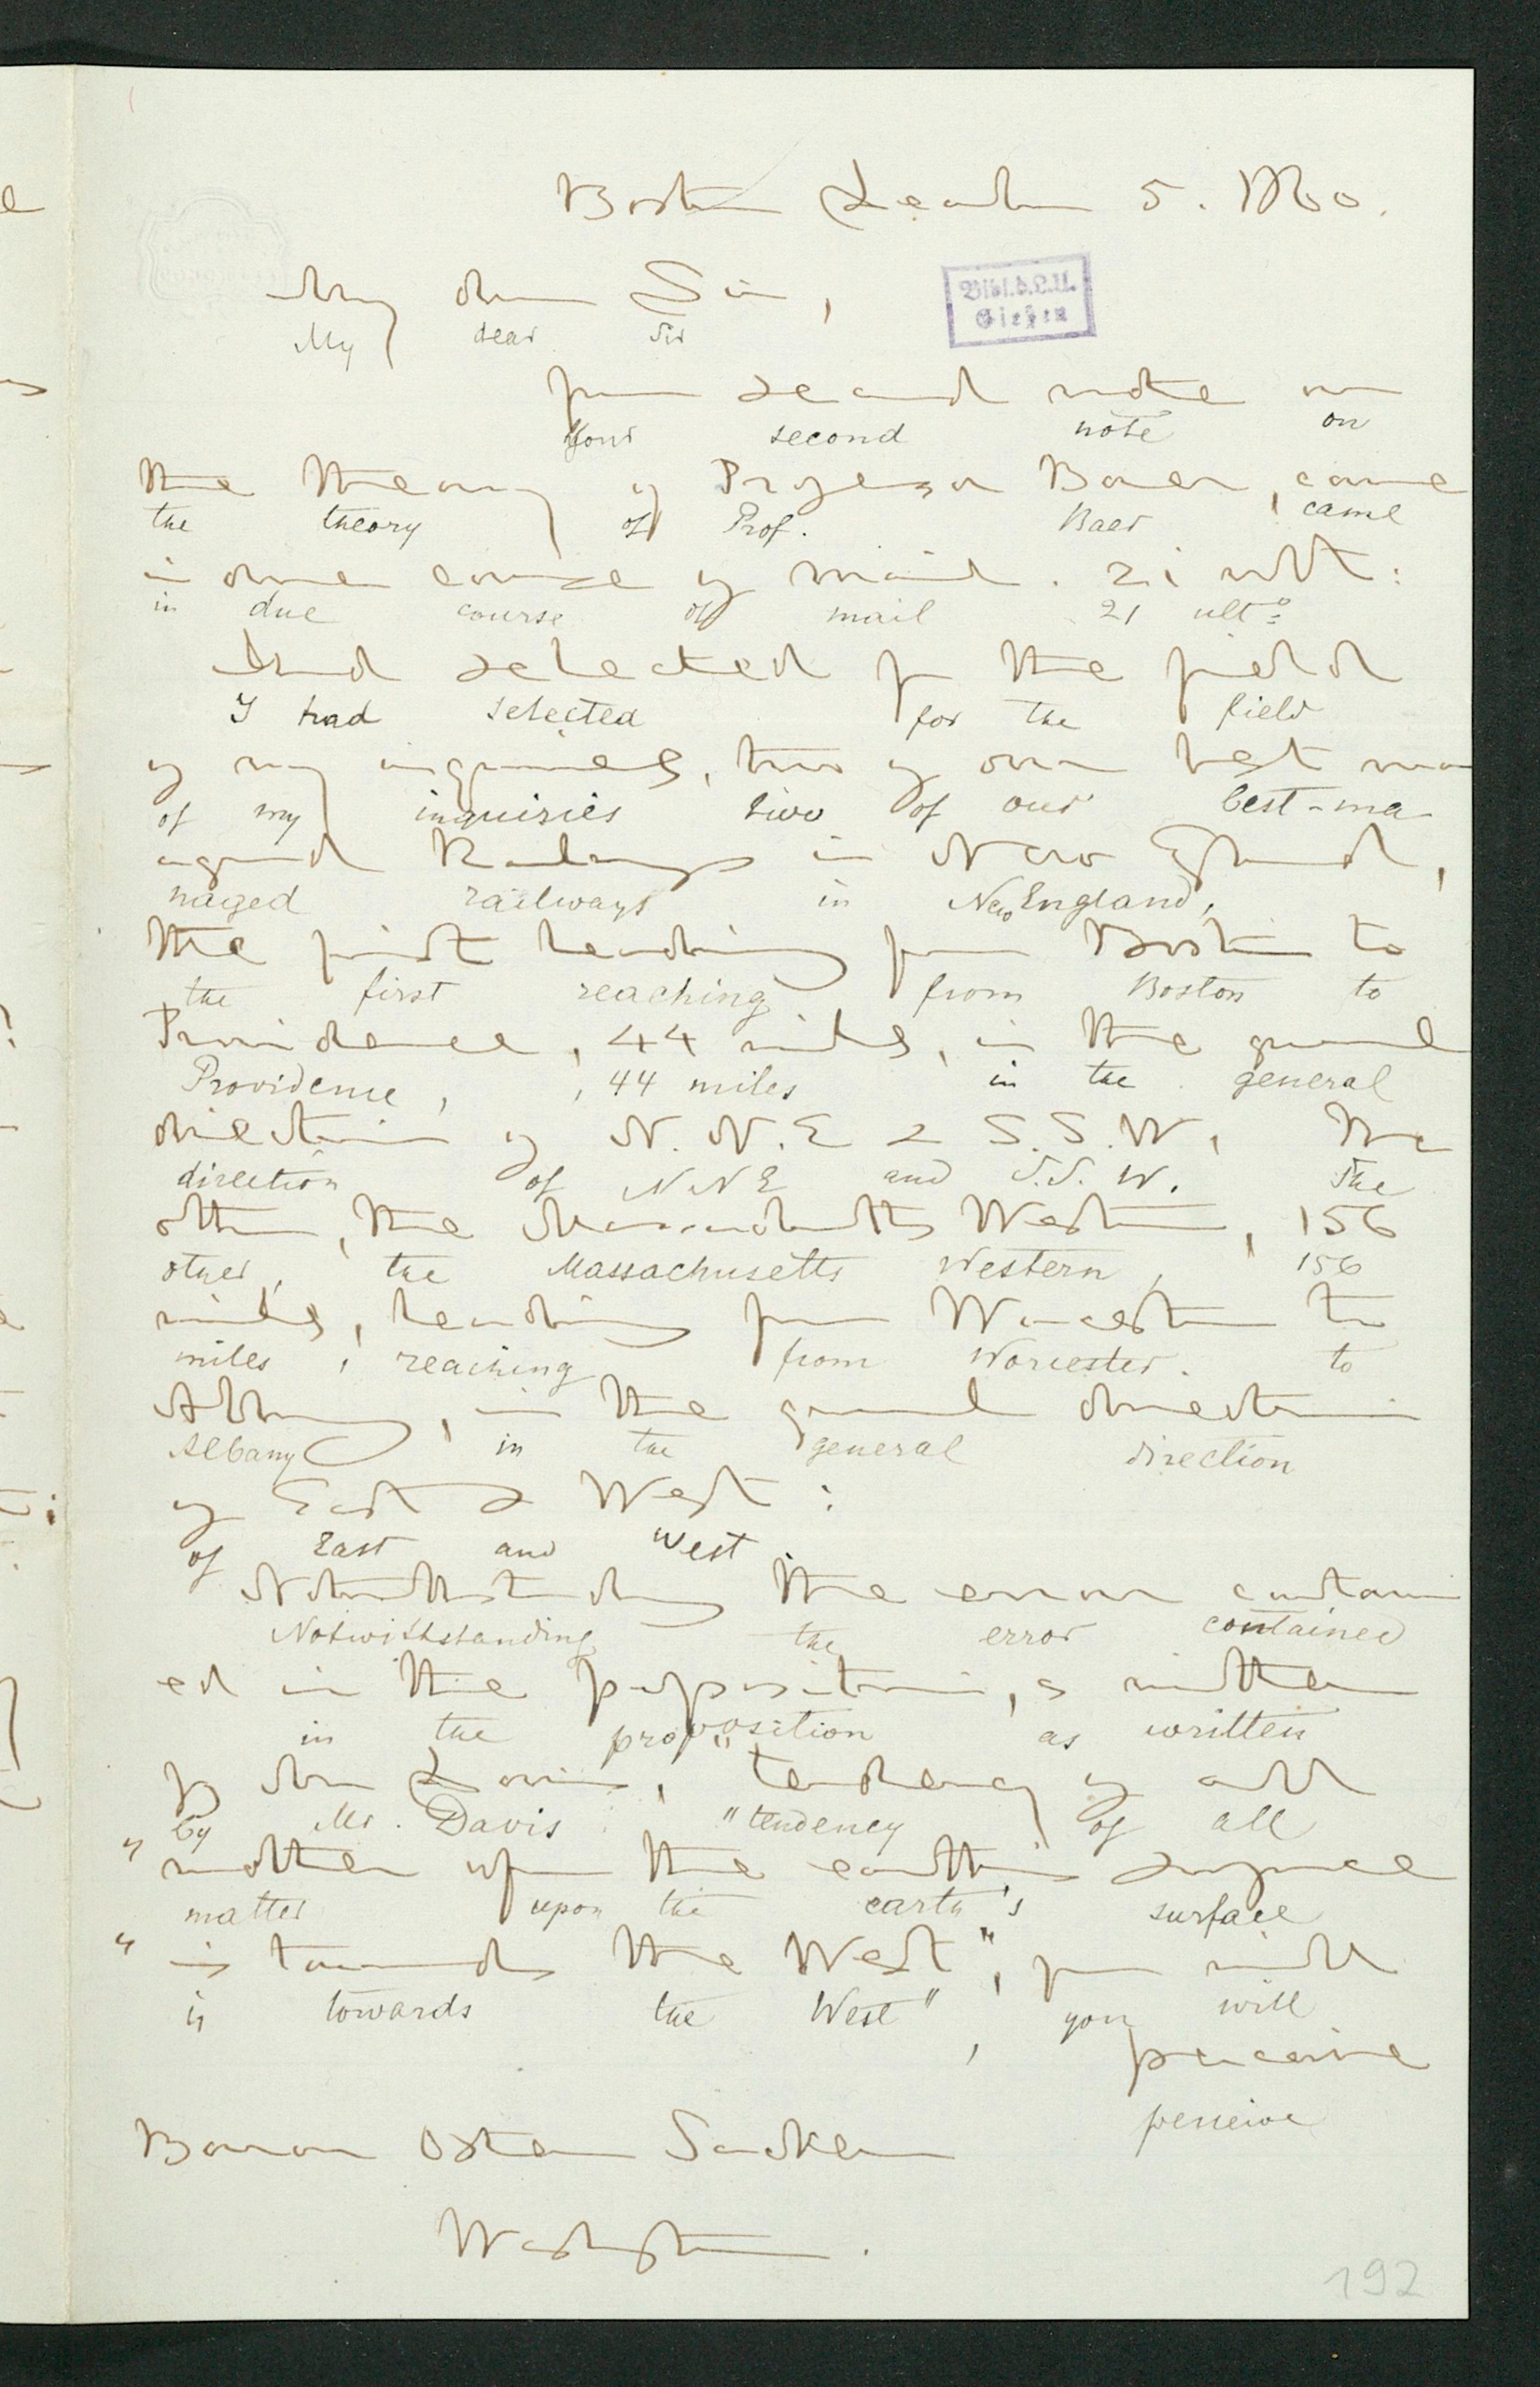 Boston December 5. 1860.
My dear Sir,
My dear Sir
Your second note on
Your second note on
the theory of Professor Baer, came
the theory of Prof. Baer came
in due course of mail. 21 ult:
in due course of mail 21 ulto
I had selected for the field
I had selected for the field
of my inquiries, two of our best ma
of my inquiries two of our best-ma-
naged Railways in New England,
naged railways in New England,
the first reaching from Boston to
the first reaching from Boston to
Providence, 44 miles, in the general
Providence, 44 miles in the general
direction of N. N. E & S. S. W. The
direction of N N E and S. S. W. The
other, the Massachusetts Western, 156
other, the Massachusetts Western, 156
miles, reaching from Worcester to
miles, reaching from Worcester. to
Albany, in the general direction
Albany in the general direction
of East & West:
of East and West.
Notwithstanding the error contain
Notwithstanding the error contained
ed in the proposition, as written
in the proposition as written
by Mr Davis, tendency of all
by Mr. Davis "tendency of all
" matter upon the earth's surface
matter upon the earth's surface
" is towards the West", you will
is towards the West", you will
perceive
perceive
Baron Osten Sacken
Washington.
Bibl.d.L.U.
Gießen
192